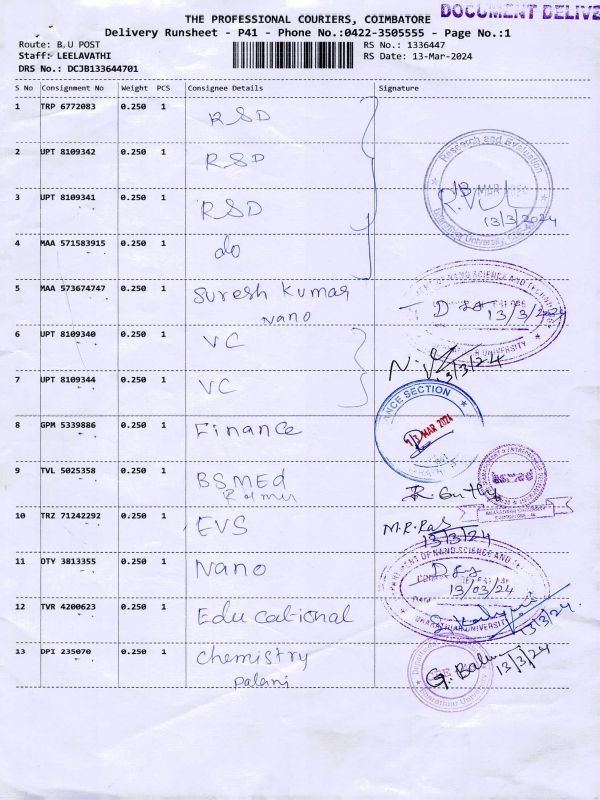 THE PROFESSIONAL COURIERS, COIMBATORE
DOCUMENT DELIVE
Delivery Runsheet - P41 - Phone No.:0422-3505555 - Page No.:1
Route: B.U POST
RS No.: 1336447
Staff: LEELAVATHI
RS Date: 13-Mar-2024
DRS No.: DCJB133644701
S No Consignment No Weight PCS Consignee Details Signature
1 TRP 6772083 0.250 1 RSD
2 UPT 8109342 0.250 1 RSD
Research and Evaluation
3 UPT 8109341 0.250 1 RSD
13/3/2024
Bharathiar University
4 MAA 571583915 0.250 1 do
OF NANO SCIENCE AND
5 MAA 573674747 0.250 1 Suresh Kumar
Nano
13/3/2024
UNIVERSITY
6 UPT 8109340 0.250 1 VC
13/3/24
7 UPT 8109344 0.250 1 VC
SECTION
8 GPM 5339886 0.250 1 Finance
13 MAR 2024
9 TVL 5025358 0.250 1 BSMED
BHARATHIAR UNIVERSITY
10 TRZ 71242292 0.250 1 EVS
M.R.Ras
13/3/24
OF NANO SCIENCE AND
11 OTY 3813355 0.250 1 Nano
13/03/24
12 TVR 4200623 0.250 1 Educational
BHARATHIAR UNIVERSITY
13/3/24
13 DPI 235070 0.250 1 Chemistry
palani
13/3/24
Bharathiar University